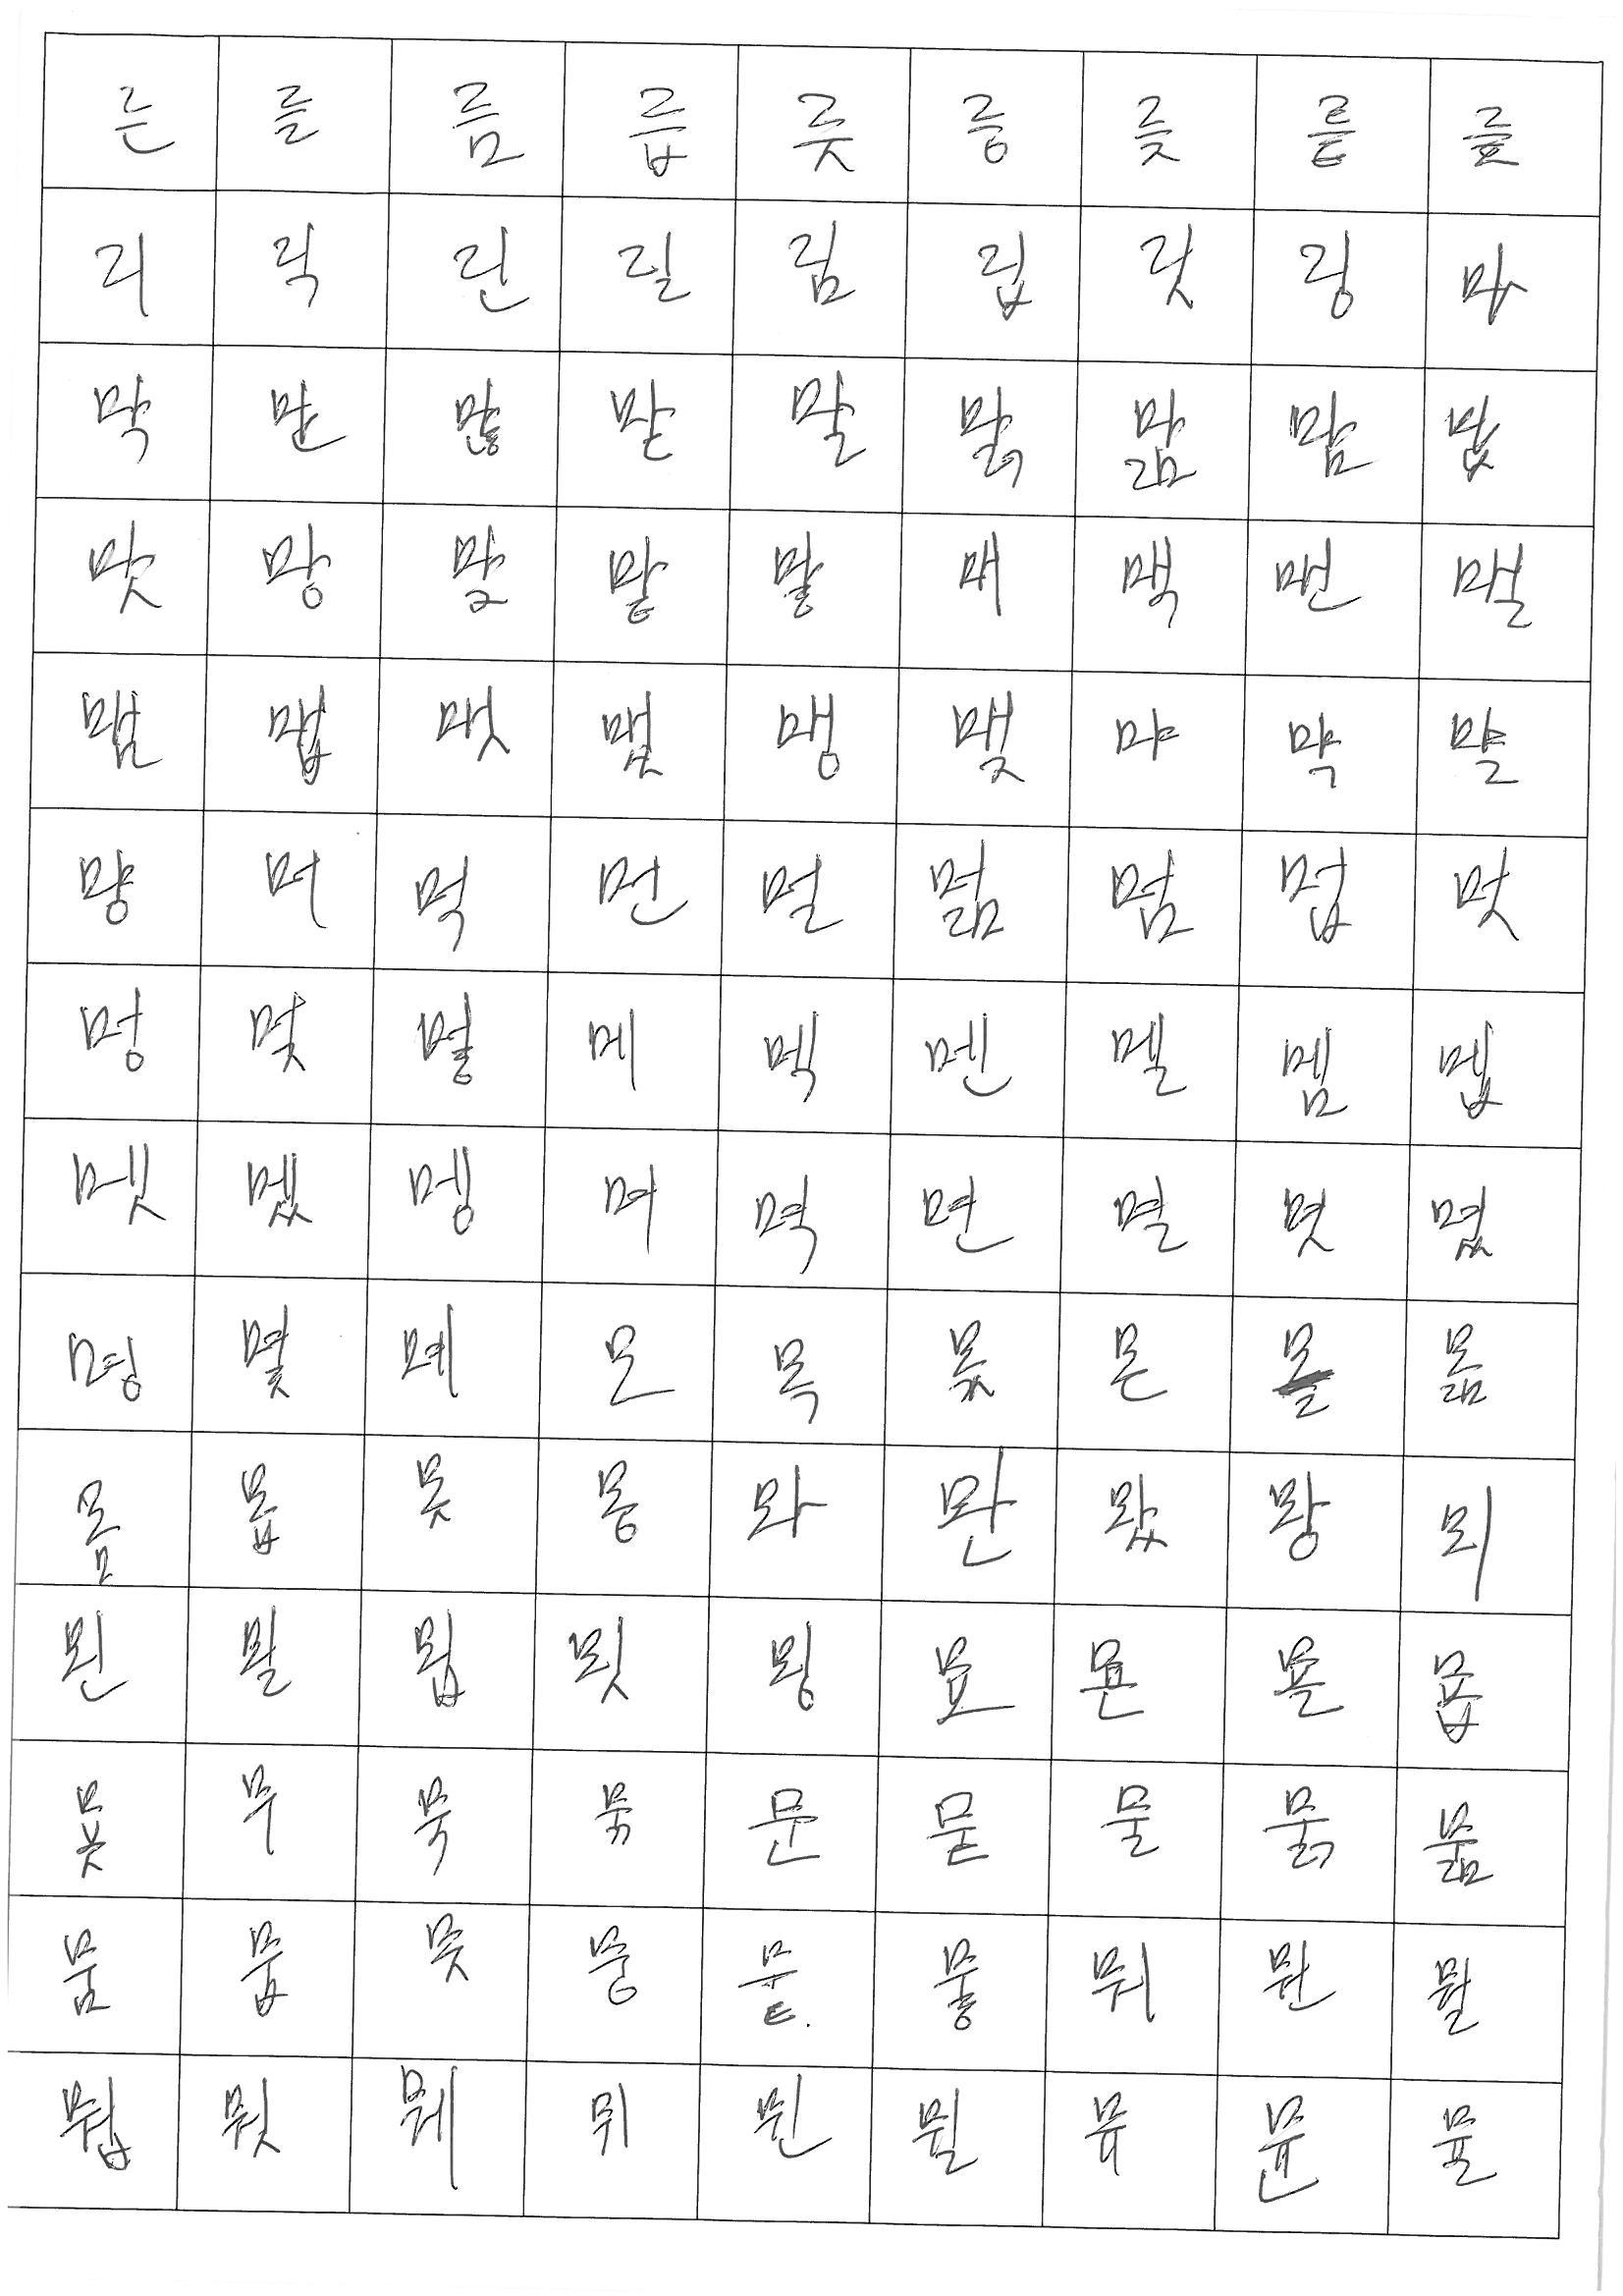 른 를 름 릅 릇 릉 릊 릍 릎
리 릭 린 릴 림 립 릿 링 마
막 만 많 맏 말 맑 맒 맘 맙
맛 망 맞 맡 맣 매 맥 맨 맬
맴 맵 맷 맸 맹 맺 먀 먁 먈
먕 머 먹 먼 멀 멂 멈 멉 멋
멍 멎 멓 메 멕 멘 멜 멤 멥
멧 멨 멩 며 멱 면 멸 몃 몄
명 몇 몌 모 목 몫 몬 몰 몲
몸 몹 못 몽 뫄 뫈 뫘 뫙 뫼
묀 묄 묍 묏 묑 묘 묜 묠 묩
묫 무 묵 묶 문 묻 물 묽 묾
뭄 뭅 뭇 뭉 뭍 뭏 뭐 뭔 뭘
뭡 뭣 뭬 뮈 뮌 뮐 뮤 뮨 뮬